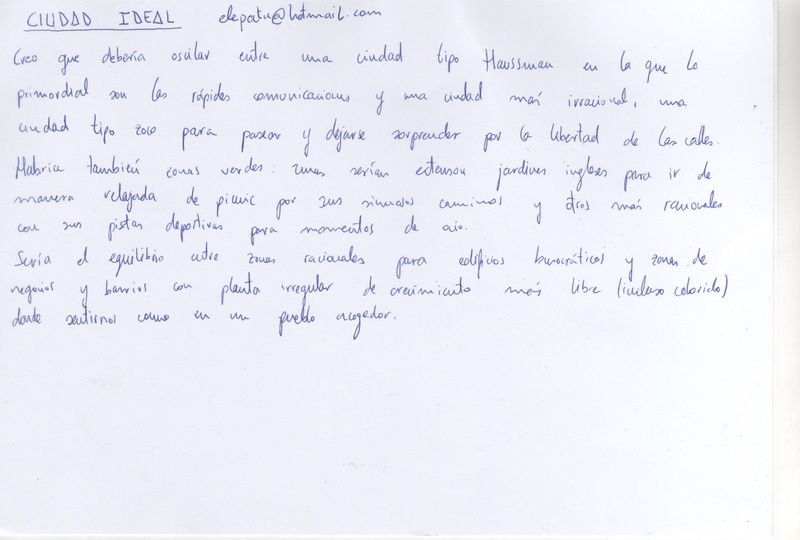 CIUDAD IDEAL elepatu@hotmail.com
Creo que debería oscilar entre una ciudad tipo Haussman en la que lo
primordial son las rápidas comunicaciones y una ciudad más irracional, una
ciudad tipo zoco para pasear y dejarse sorprender por la libertad de las calles.
Habría también zonas verdes: unas serían extensos jardines ingleses para ir de
manera relajada de picnic por sus sinuosos caminos y otros más racionales
con sus pistas deportivas para momentos de ocio.
Sería el equilibrio entre zonas racionales para edificios burocráticos y zonas de
negocios y barrios con planta irregular de crecimiento más libre (incluso colorido)
donde sentirnos como en un pueblo acogedor.